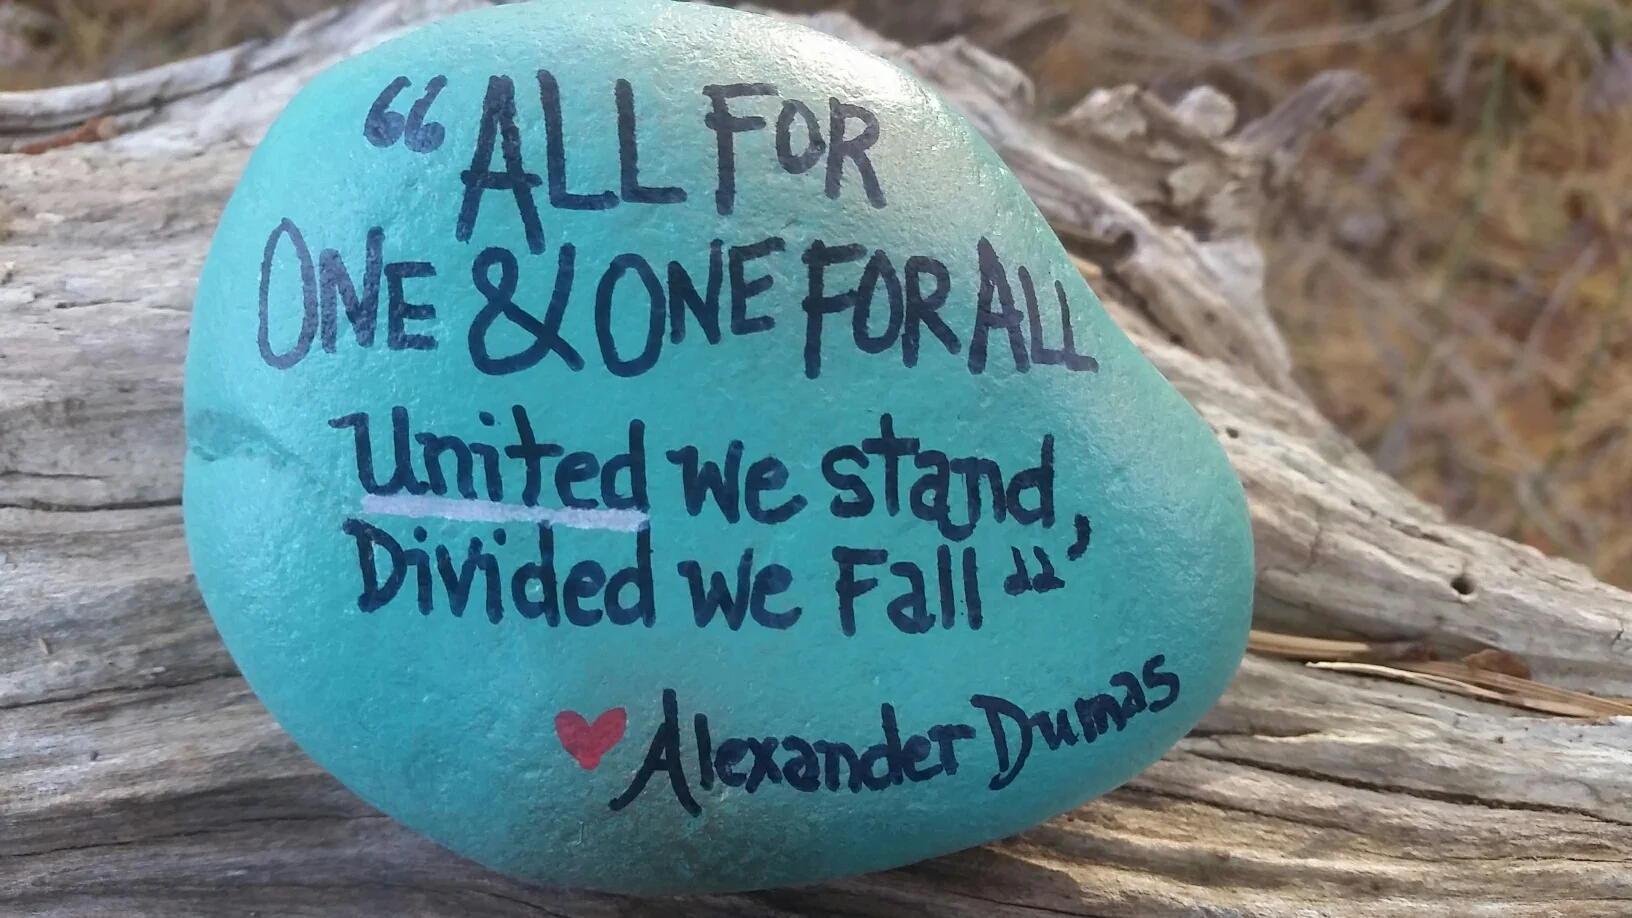 “ALL FOR
ONE & ONE FOR ALL
United we stand,
Divided we Fall"
Alexander Dumas